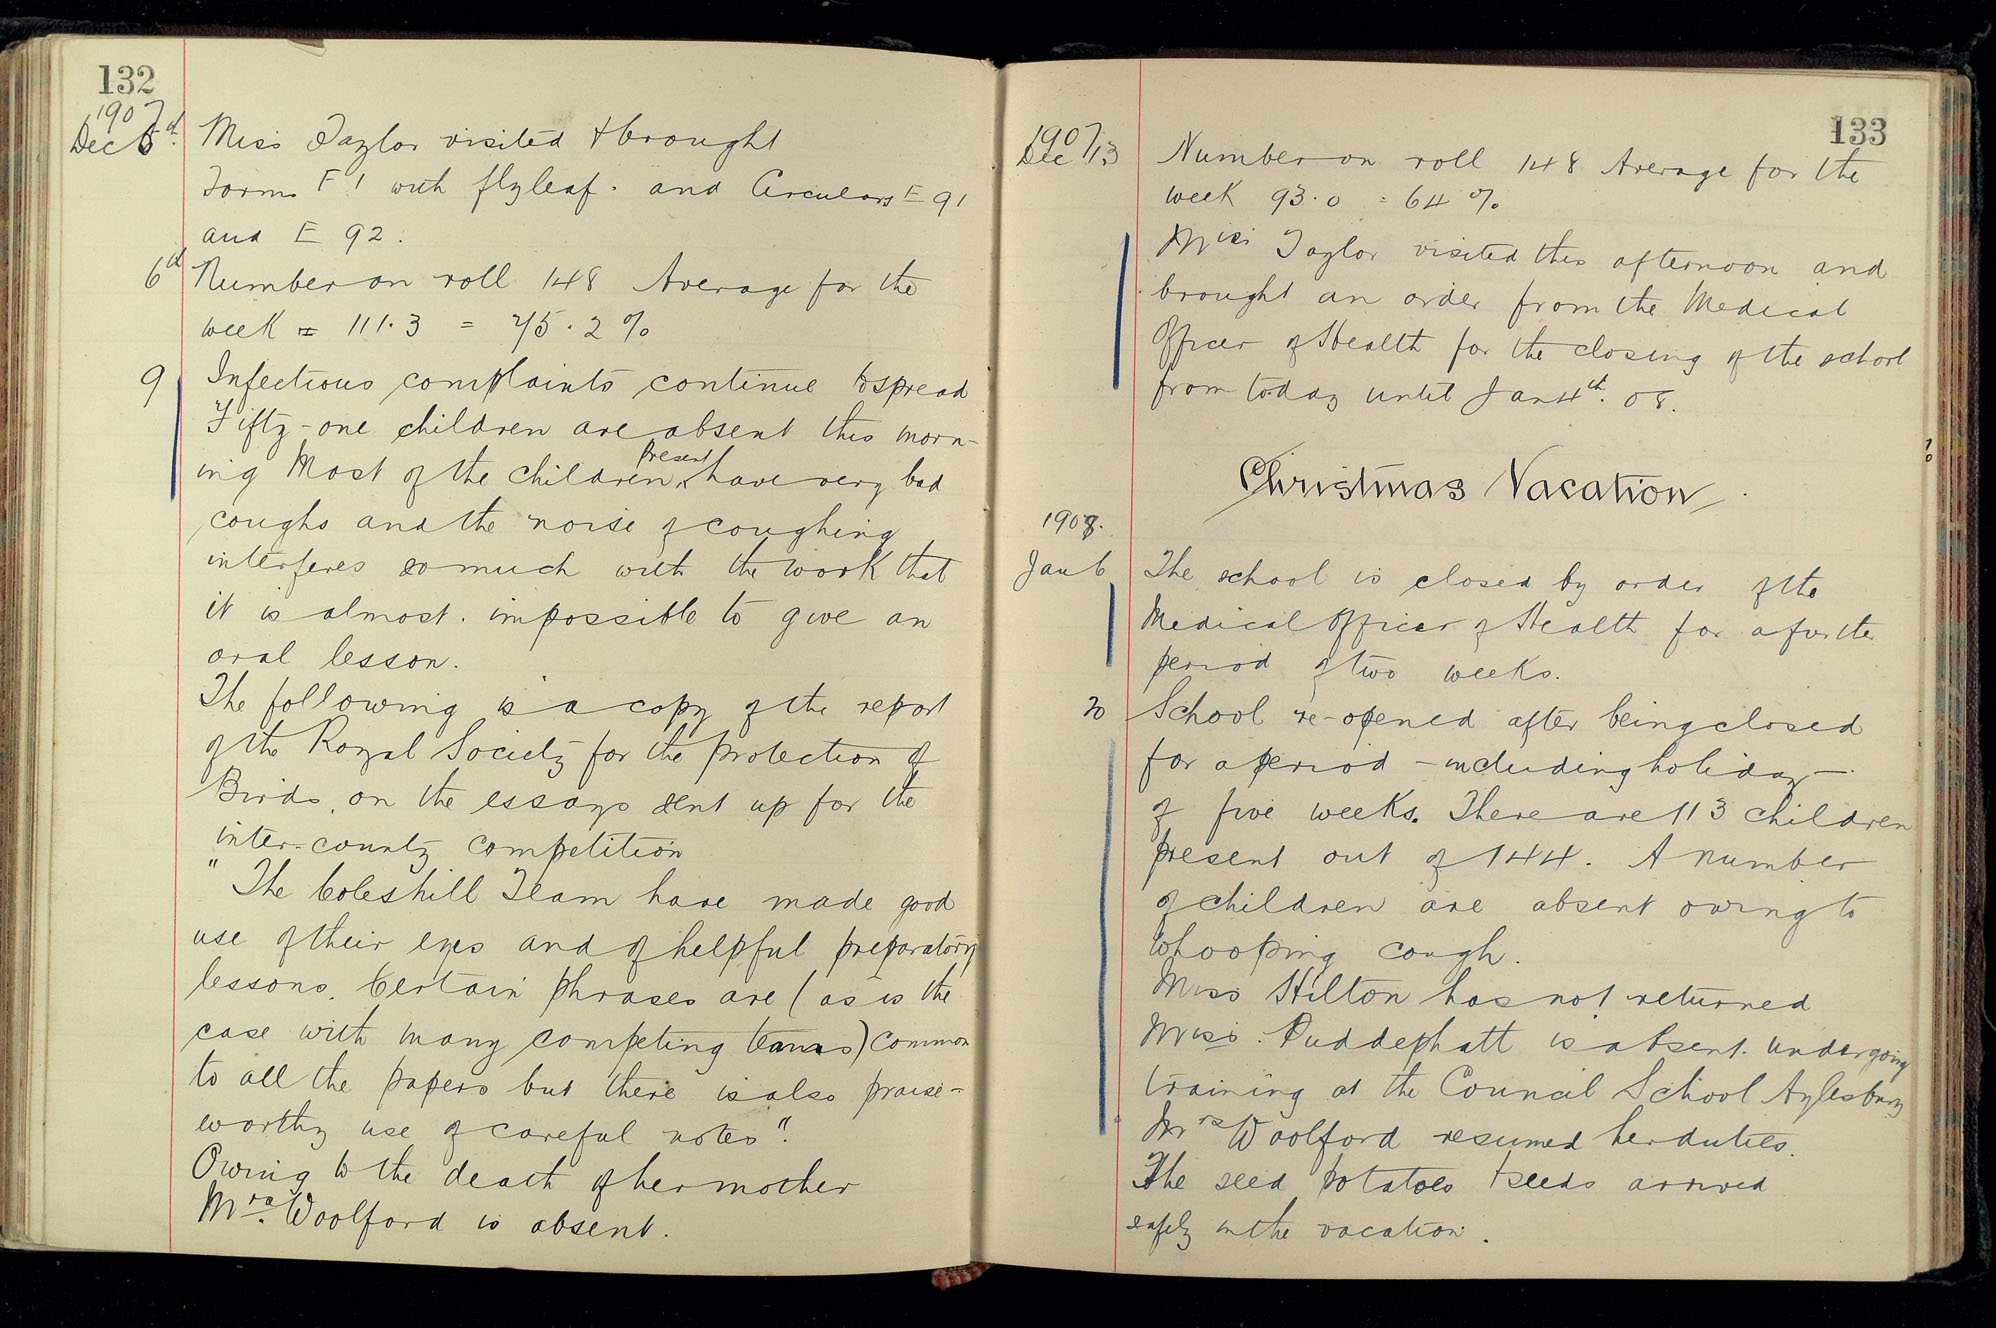 132
1907
Dec 5th. Miss Taylor visited & brought
Forms F 1 with flyleaf. and Circulars E 91
and E 92.
6th Number on roll 148 Average for the
week = 111.3 = 75.2 %
9 Infectious complaints continue to spread
Fifty-one children are absent this morn-
ing Most of the children present have very bad
coughs and the noise of coughing
interferes so much with the work that
it is almost impossible to give an
oral lesson.
The following is a copy of the report
of the Royal Society for the protection of
Birds, on the essays sent up for the
inter-county competition
"The Coleshill Team have made good
use of their eyes and of helpful preparatory
lessons. Certain phrases are (as is the
case with many competing teams) common
to all the papers but there is also praise-
worthy use of careful notes".
Owing to the death of her mother
Mrs. Woolford is absent.
133
1907
Dec 13 Number on roll 148 Average for the
week 93.0 = 64 %
Miss Taylor visited this afternoon and
brought an order from the Medical
Officer of Health for the closing of the school
from today until Jan 4th. 08.
Christmas Vacation
1908.
Jan 6 The school is closed by order of the
Medical Officer of Health for a further
period of two weeks.
20 School re-opened after being closed
for a period - including holiday -
of five weeks. There are 113 children
present out of 144. A number
of children are absent owing to
whooping cough.
Miss Hilton has not returned
Miss. Puddephatt is absent. undergoing
training at the Council School Aylesbury
Mrs Woolford resumed her duties.
The seed potatoes & seeds arrived
safely in the vacation.